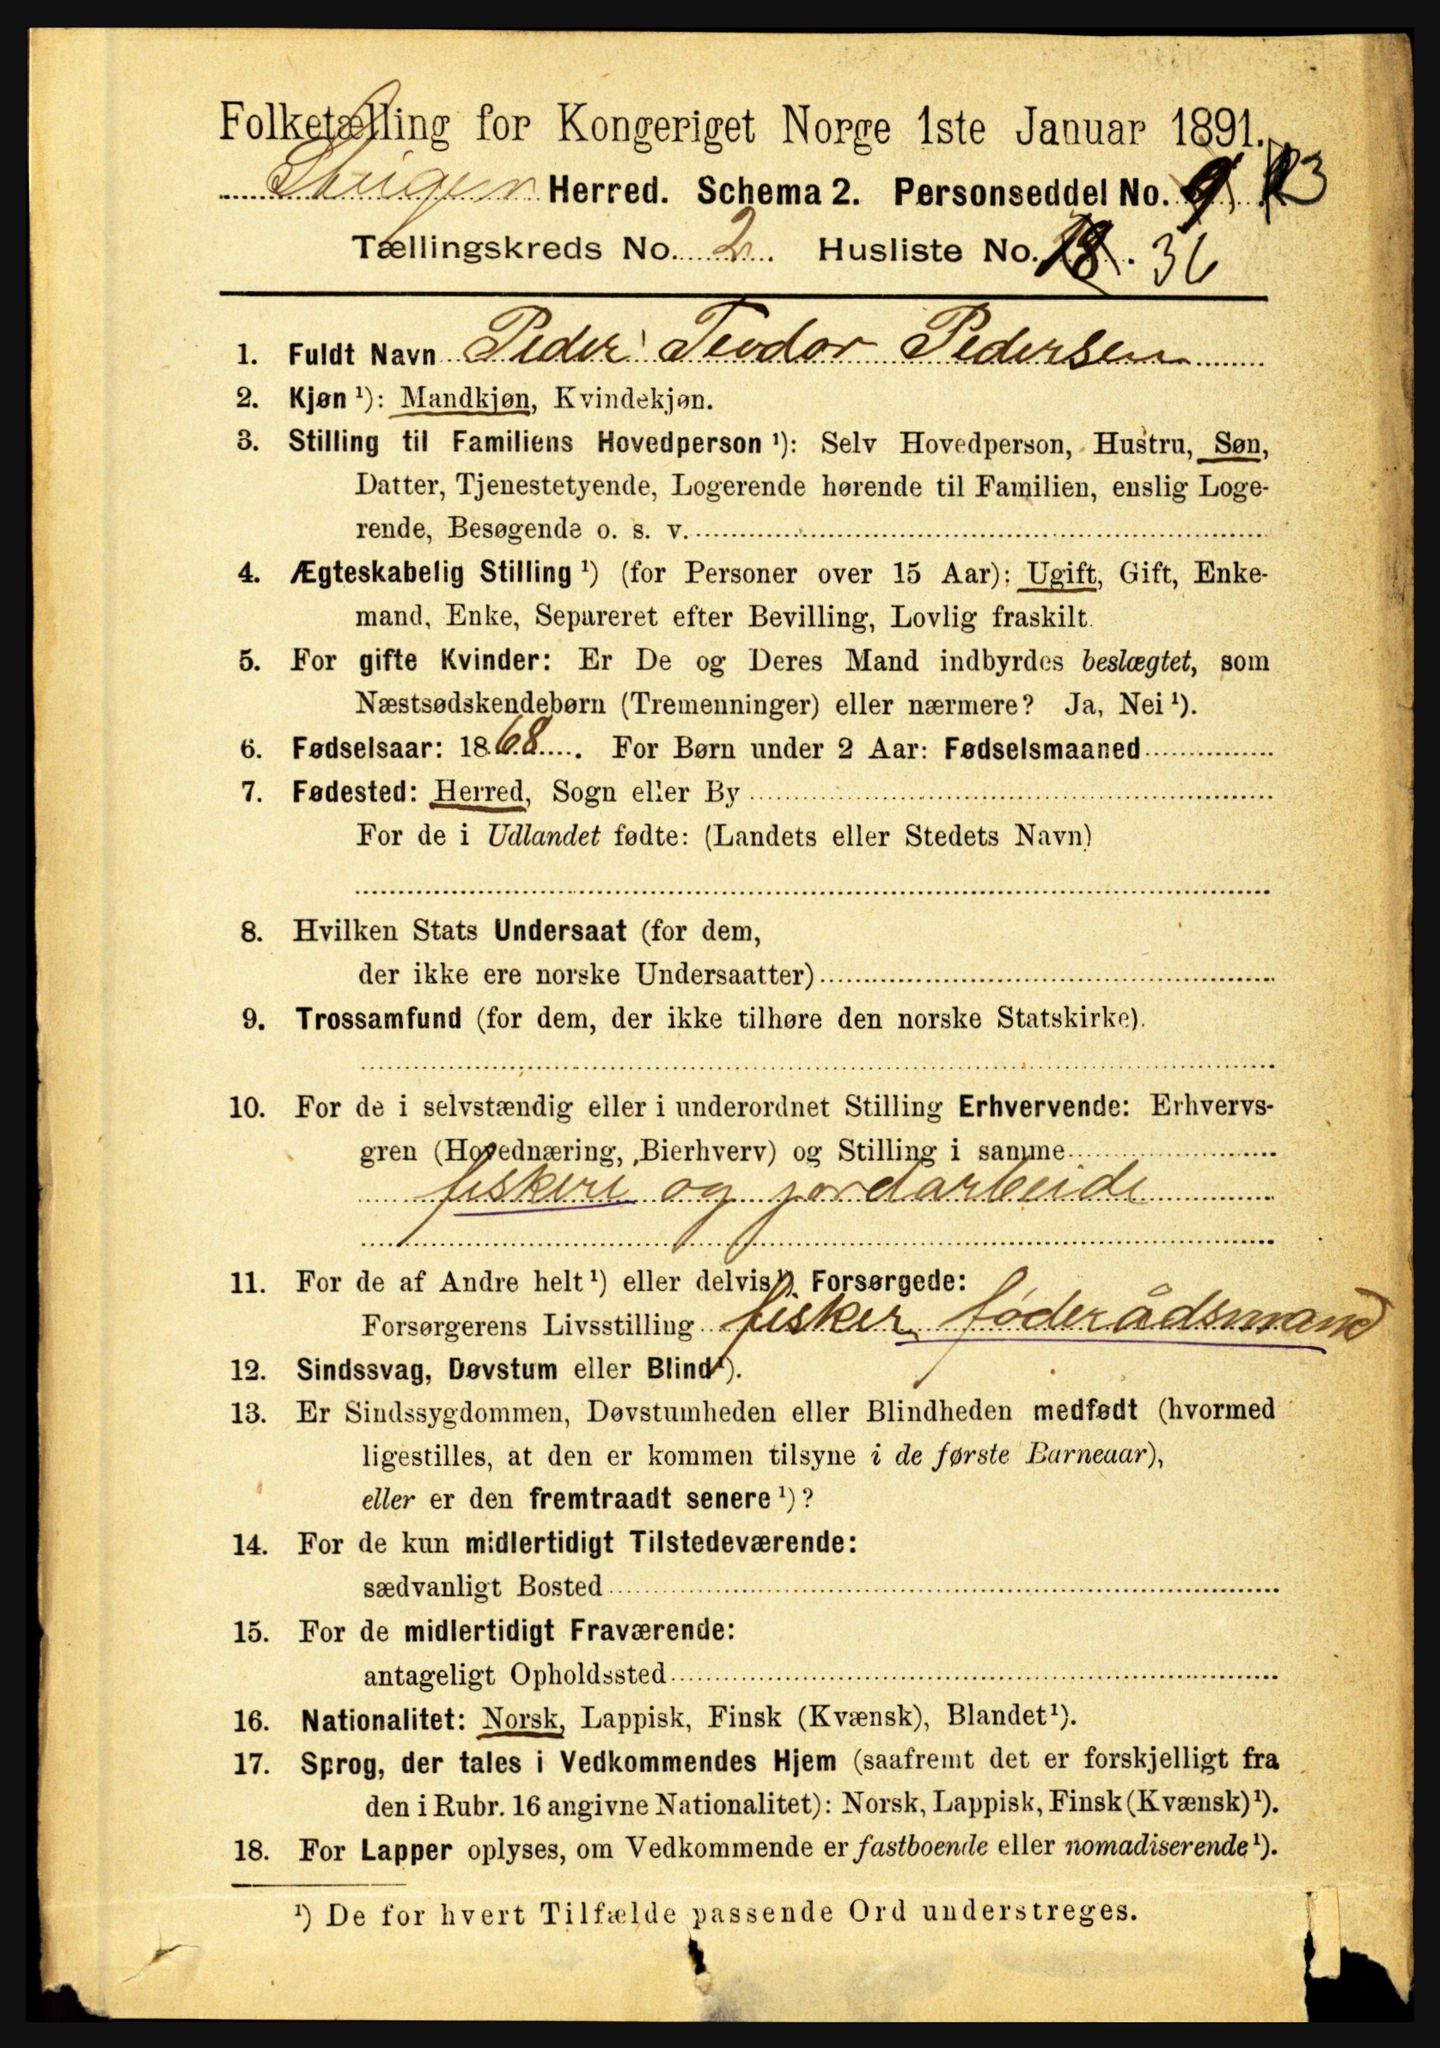 Folketælling for Kongeriget Norge 1ste Januar 1891.
Steigen Herred. Schema 2. Personseddel No. 9 13
Tællingskreds No. 2. Husliste No. 18. 36
1. Fuldt Navn Peder Teodor Pedersen
2. Kjøn ¹): Mandkjøn, Kvindekjøn.
3. Stilling til Familiens Hovedperson ¹): Selv Hovedperson, Hustru, Søn,
Datter, Tjenestetyende, Logerende hørende til Familien, enslig Loge-
rende, Besøgende o. s. v.
4. Ægteskabelig Stilling ¹) (for Personer over 15 Aar): Ugift, Gift, Enke-
mand, Enke, Separeret efter Bevilling, Lovlig fraskilt.
5. For gifte Kvinder: Er De og Deres Mand indbyrdes beslægtet, som
Næstsødskendebørn (Tremenninger) eller nærmere? Ja, Nei ¹).
6. Fødselsaar: 1868. For Børn under 2 Aar: Fødselsmaaned
7. Fødested: Herred, Sogn eller By
For de i Udlandet fødte: (Landets eller Stedets Navn)
8. Hvilken Stats Undersaat (for dem,
der ikke ere norske Undersaatter)
9. Trossamfund (for dem, der ikke tilhøre den norske Statskirke).
10. For de i selvstændig eller i underordnet Stilling Erhvervende: Erhvervs-
gren (Hovednæring, Bierhverv) og Stilling i samme
fiskeri og jordarbeide
11. For de af Andre helt ¹) eller delvis ¹) Forsørgede:
Forsørgerens Livsstilling fisker føderådsmand
12. Sindssvag, Døvstum eller Blind ¹).
13. Er Sindssygdommen, Døvstumheden eller Blindheden medfødt (hvormed
ligestilles, at den er kommen tilsyne i de første Barneaar),
eller er den fremtraadt senere ¹)?
14. For de kun midlertidigt Tilstedeværende:
sædvanligt Bosted
15. For de midlertidigt Fraværende:
antageligt Opholdssted
16. Nationalitet: Norsk, Lappisk, Finsk (Kvænsk), Blandet ¹).
17. Sprog, der tales i Vedkommendes Hjem (saafremt det er forskjelligt fra
den i Rubr. 16 angivne Nationalitet): Norsk, Lappisk, Finsk (Kvænsk) ¹).
18. For Lapper oplyses, om Vedkommende er fastboende eller nomadiserende ¹).
¹) De for hvert Tilfælde passende Ord understreges.